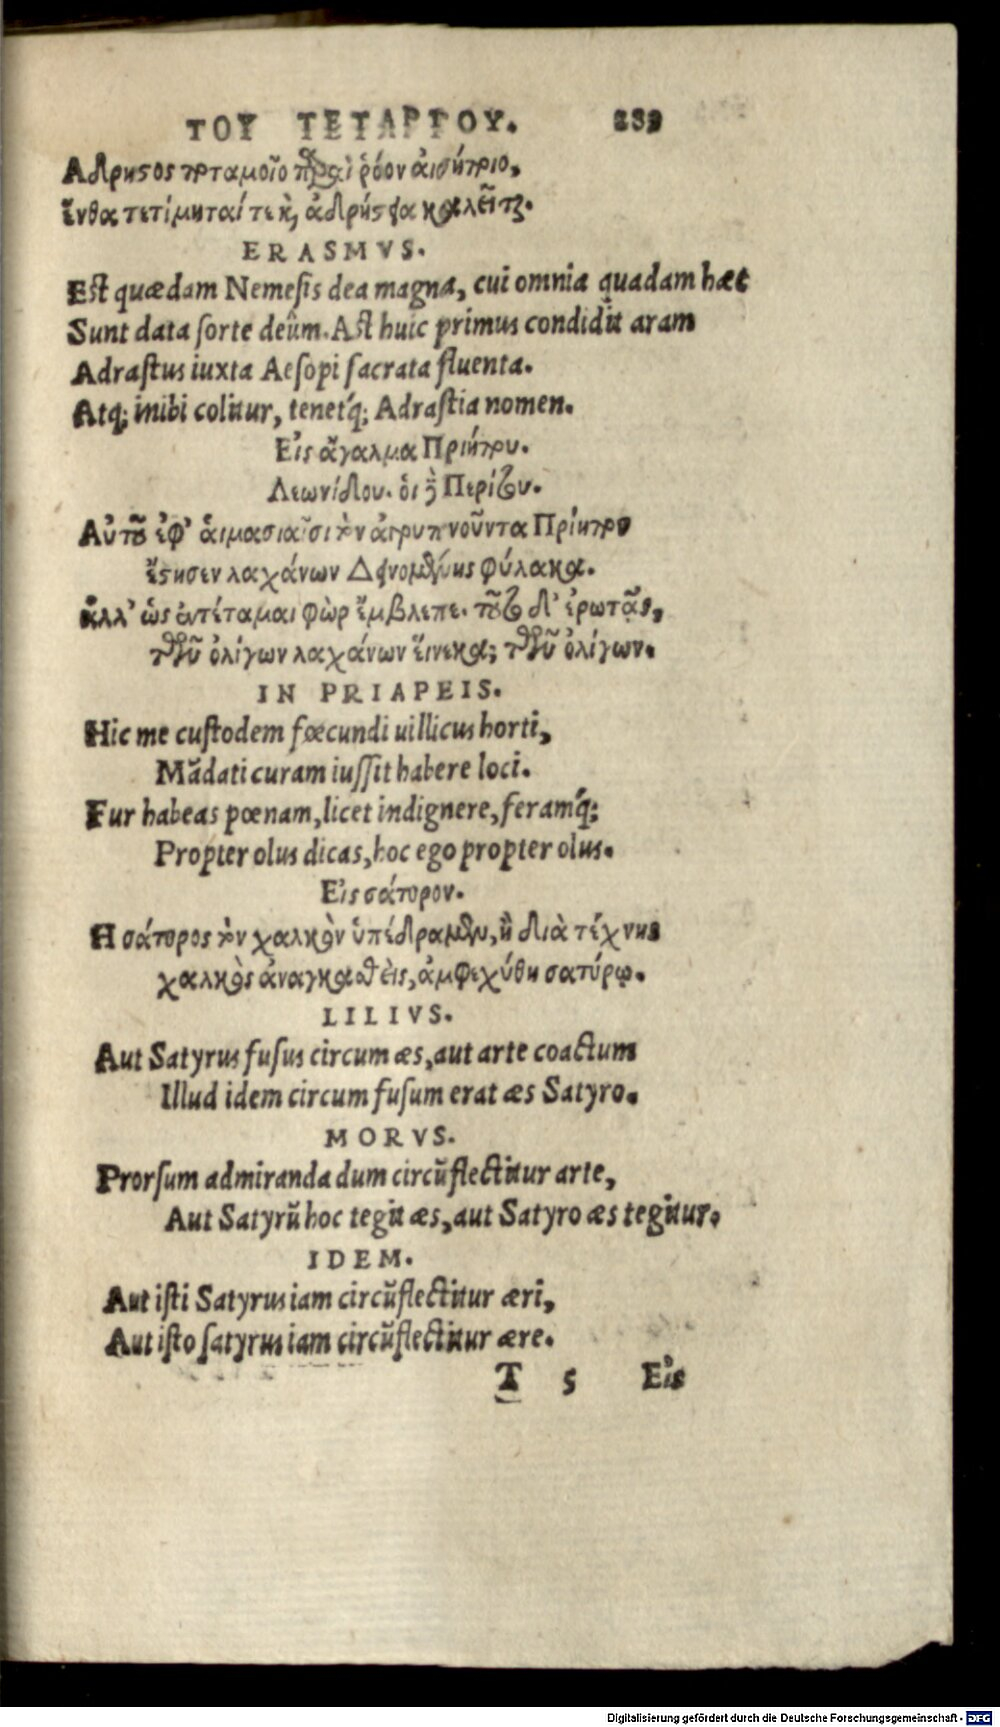 ΤΟΥ ΤΕΤΑΡΤΟΥ. 239
Αδρηςος ποταμοῖο παραὶ ῥόον αἰσήποιο,
ἔνθα τετίμηταί τε κὶ ἀδρήςεια καλεῖται.
ERASMVS.
Est quædam Nemesis dea magna, cui omnia quadam hæc
Sunt data sorte deûm. Ast huic primus condidit aram
Adrastus iuxta Aesopi sacrata fluenta.
Atq; inibi colitur, tenet'q; Adrastia nomen.
Εἰς ἄγαλμα Πριήπου.
Λεωνίδου. ὁι δὲ Περίτου.
Αὐτοῦ ἐφ' ἁιμασιαῖσι τὸν ἀγρυπνοῦντα Πρίηπον
ἔςησεν λαχάνων Δεινομένης φύλακα.
ἀλλ' ὡς ἐντέταμαι φὼρ ἔμβλεπε. τοῦτο δ' ἐρωτᾷς,
τῶν ὀλίγων λαχάνων εἵνεκα; τῶν ὀλίγων.
IN PRIAPEIS.
Hic me custodem fœcundi uillicus horti,
Mādati curam iussit habere loci.
Fur habeas pœnam, licet indignere, feram'q;:
Propter olus dicas, hoc ego propter olus.
Εἰς σάτυρον.
Η σάτυρος τὸν χαλκὸν ὑπέδραμεν, ἢ διὰ τέχνης
χαλκὸς ἀναγκαθεὶς, ἀμφεχύθη σατύρῳ.
LILIVS.
Aut Satyrus fusus circum æs, aut arte coactum
Illud idem circum fusum erat æs Satyro.
MORVS.
Prorsum admiranda dum circūflectitur arte,
Aut Satyrū hoc tegit æs, aut Satyro æs tegitur.
IDEM.
Aut isti Satyrus iam circūflectitur æri,
Aut isto satyrus iam circūflectitur ære.
T 5 Εἰς
Digitalisierung gefördert durch die Deutsche Forschungsgemeinschaft - DFG